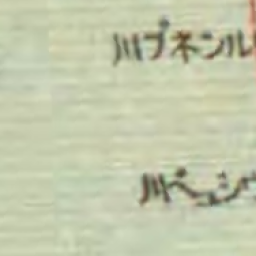 川プネンル
川ペュシウ